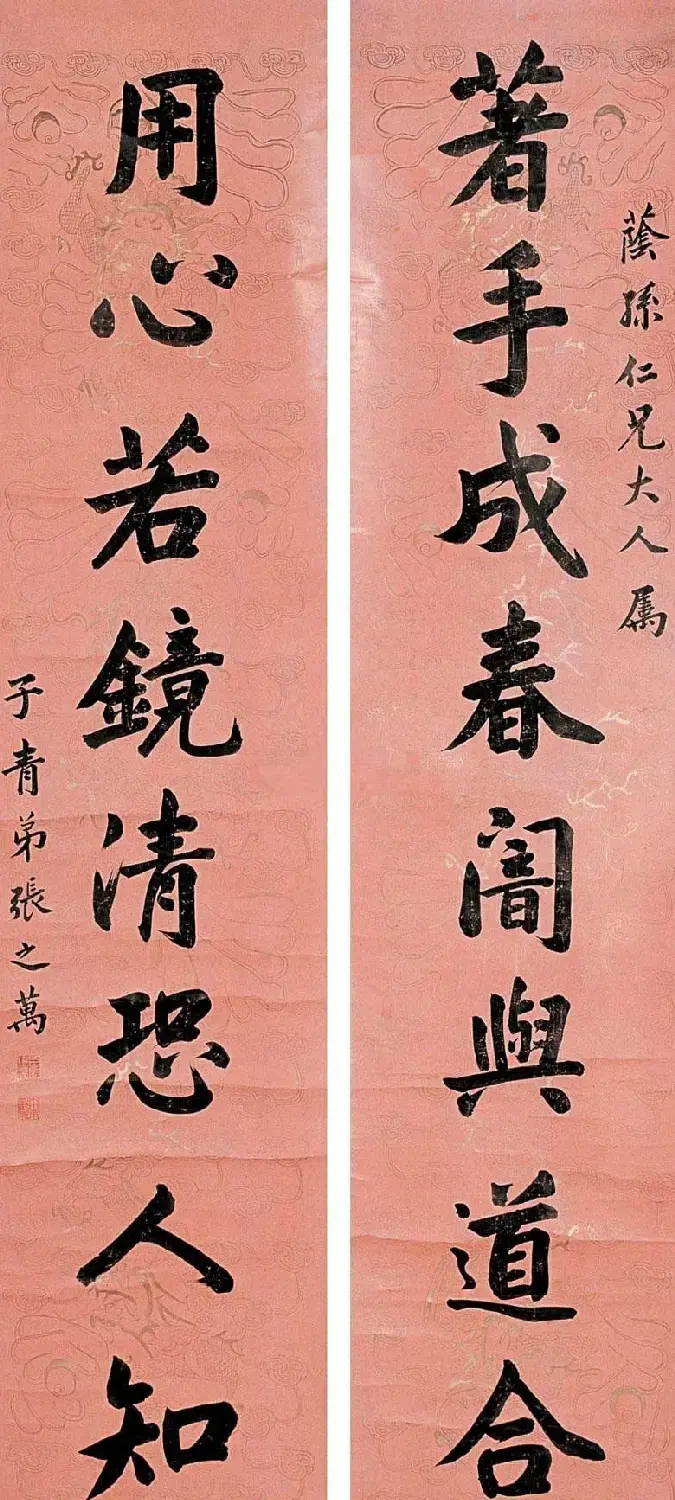 蔭孫仁兄大人属
著手成春闇與道合
用心若鏡清恐人知
子青弟張之萬